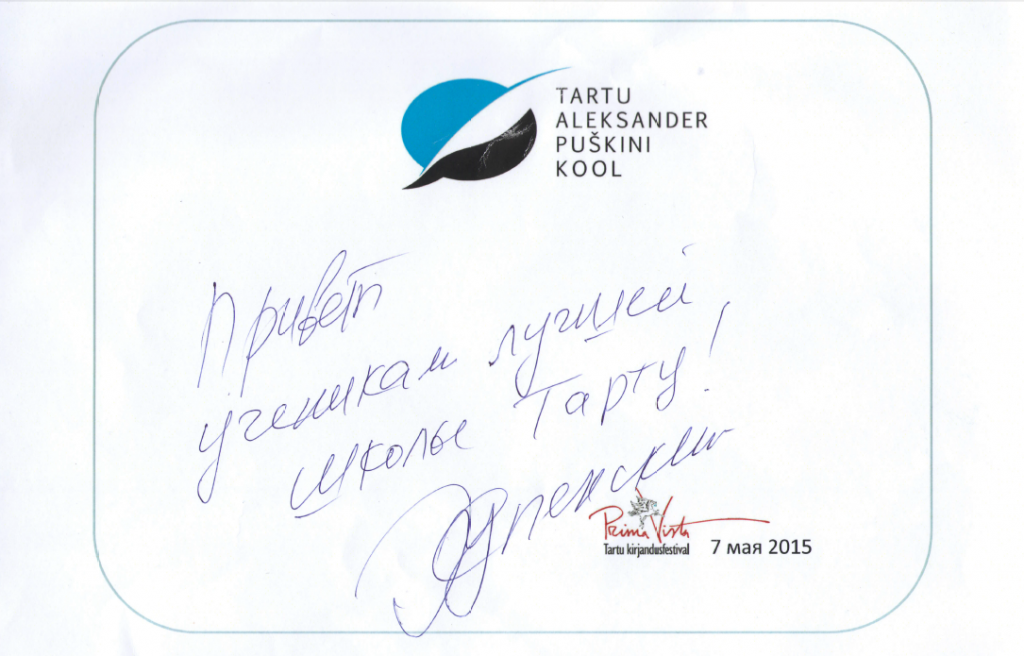 TARTU
ALEKSANDER
PUŠKINI
KOOL
Привет
ученикам лучшей
школы Тарту!
Успенский
Prima Vista
Tartu kirjandusfestival
7 мая 2015